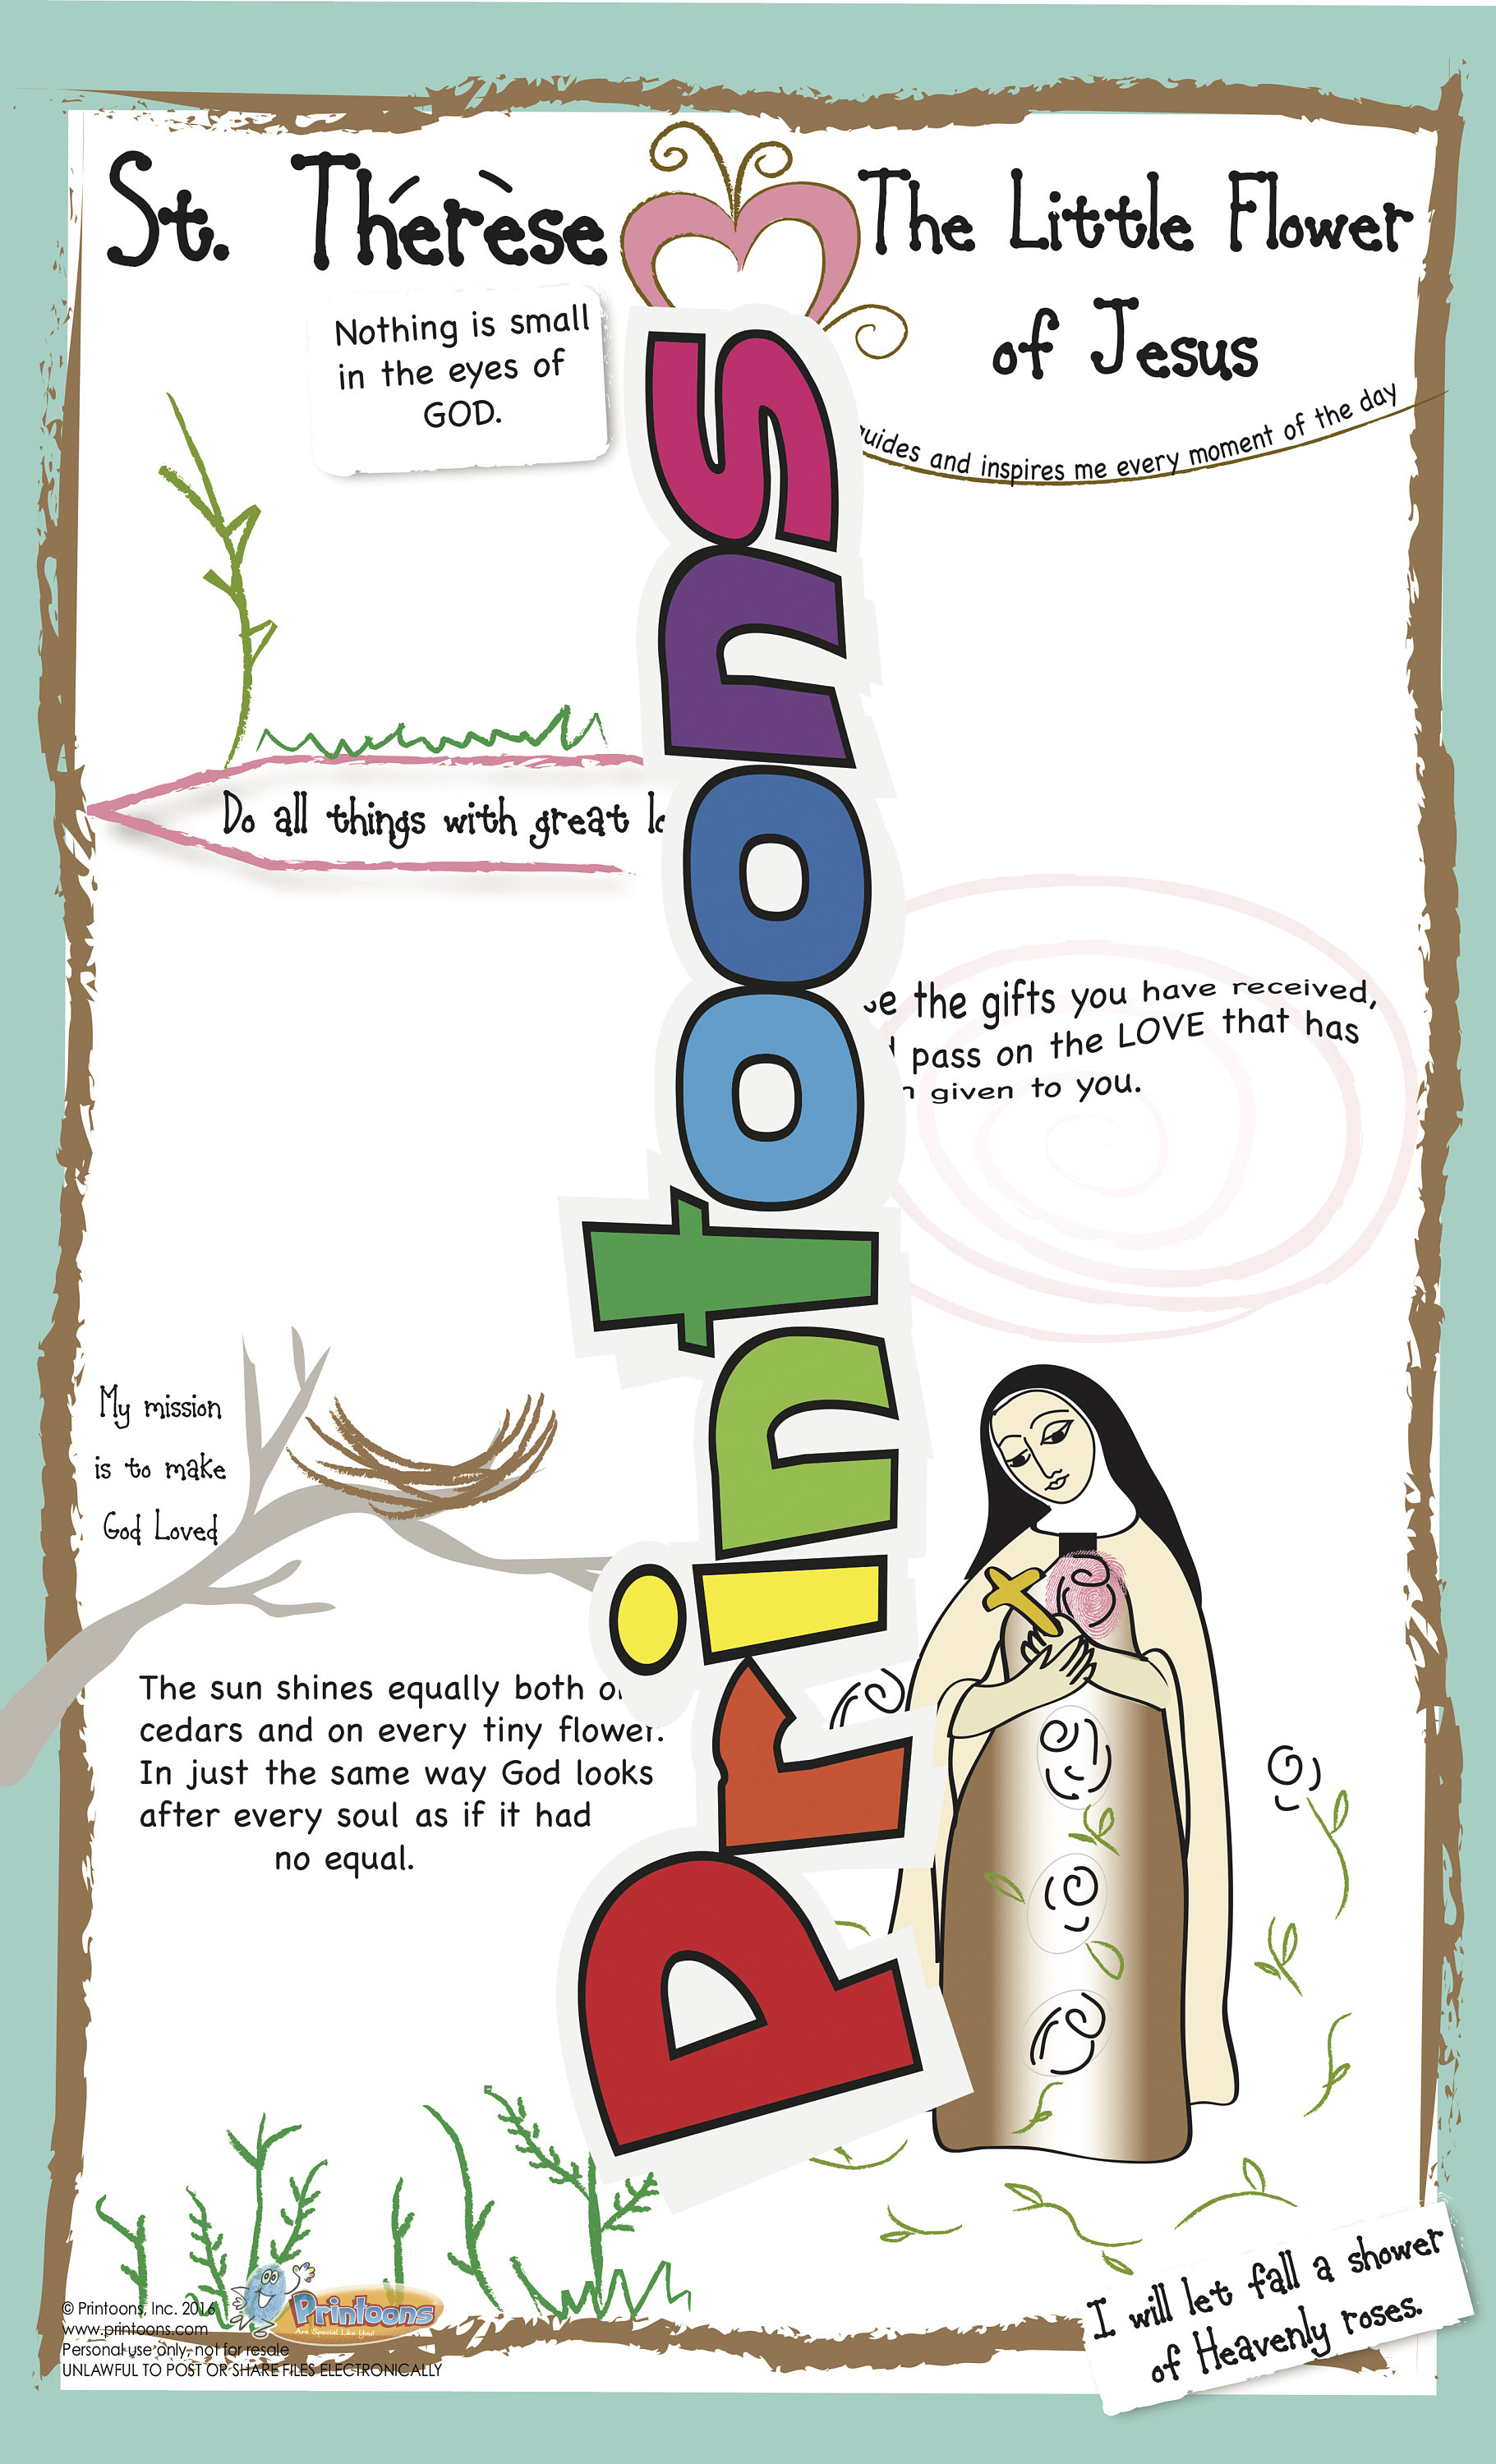 St. Thérèse
The Little Flower
of Jesus
Nothing is small
in the eyes of
GOD.
and inspires me every moment of the day
Do all things with great
the gifts you have received,
pass on the LOVE that has
given to you.
Printoons
My mission
is to make
God Loved
The sun shines equally both
cedars and on every tiny flower.
In just the same way God looks
after every soul as if it had
no equal.
I will let fall a shower
of Heavenly roses.
© Printoons, Inc. 2016
www.printoons.com
Personal use only, not for resale
UNLAWFUL TO POST OR SHARE FILES ELECTRONICALLY
Printoons
Are Special Like You!